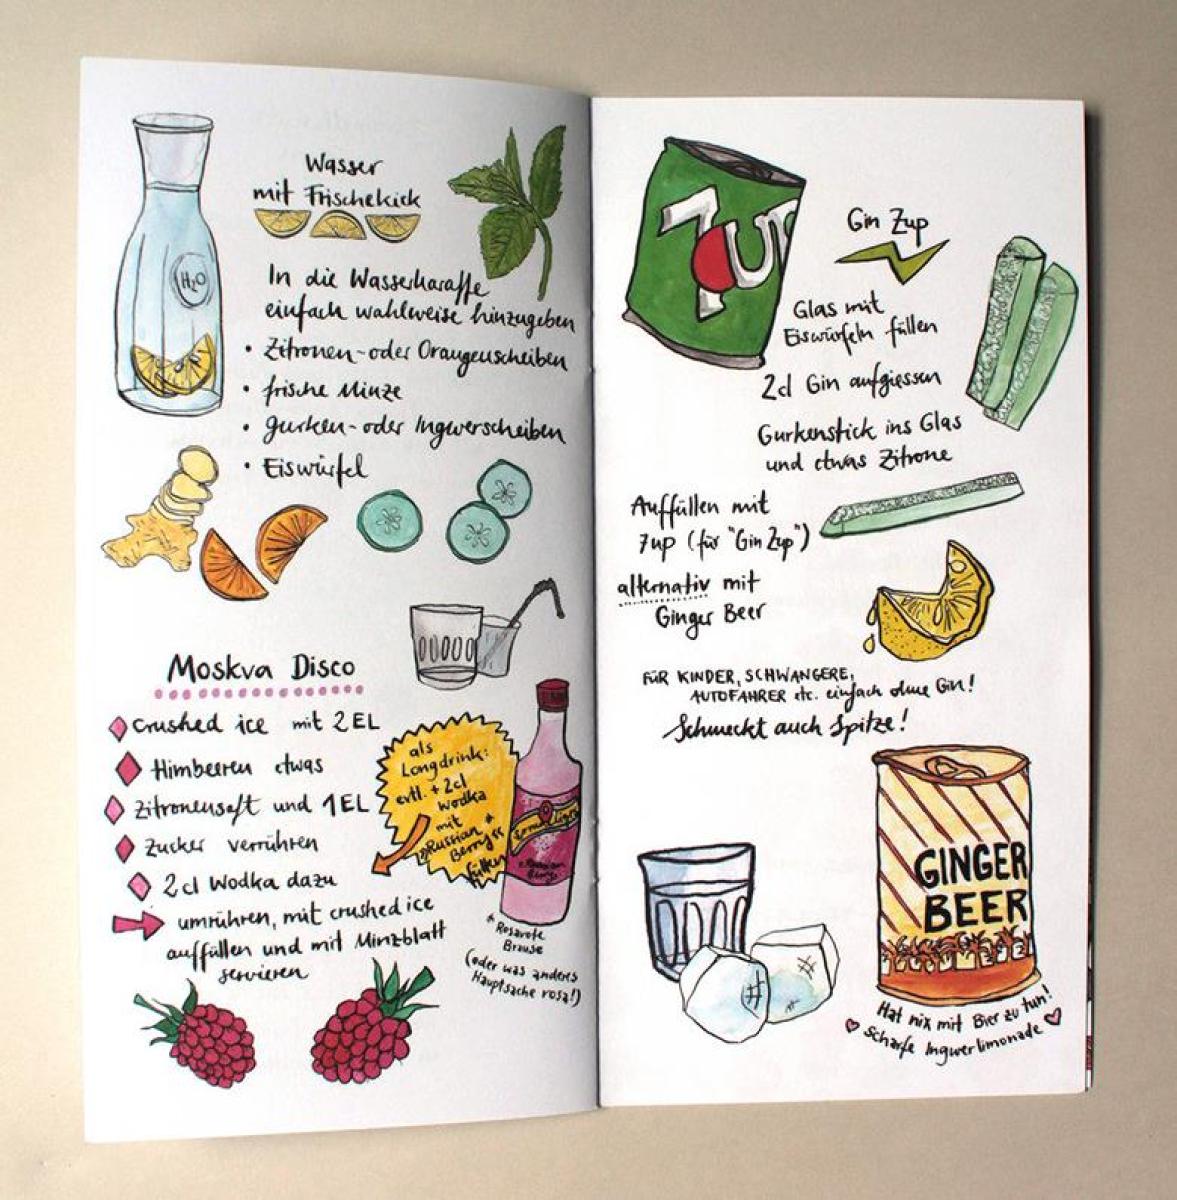 Wasser
mit Frischekick
H₂O
In die Wasserkaraffe
einfach wahlweise hinzugeben
• Zitronen- oder Orangenscheiben
• frische Minze
• Gurken- oder Ingwerscheiben
• Eiswürfel
Moskva Disco
crushed ice mit 2 EL
Himbeeren etwas
Zitronensaft und 1 EL
Zucker verrühren
2 cl Wodka dazu
umrühren, mit crushed ice
auffüllen und mit Minzblatt
servieren
als
Longdrink:
evtl. + 2cl
Wodka
mit
"Russian *
Berry"
füllen
Russian
Berry
* Rosarote
Brause
(oder was anders
Hauptsache rosa!)
7up
Gin Zup
Glas mit
Eiswürfeln füllen
2cl Gin aufgiessen
Gurkenstick ins Glas
und etwas Zitrone
Auffüllen mit
7up (für "Gin Zup")
alternativ mit
Ginger Beer
FÜR KINDER, SCHWANGERE,
AUTOFAHRER etc. einfach ohne Gin!
Schmeckt auch Spitze!
GINGER
BEER
Hat nix mit Bier zu tun!
Scharfe Ingwerlimonade